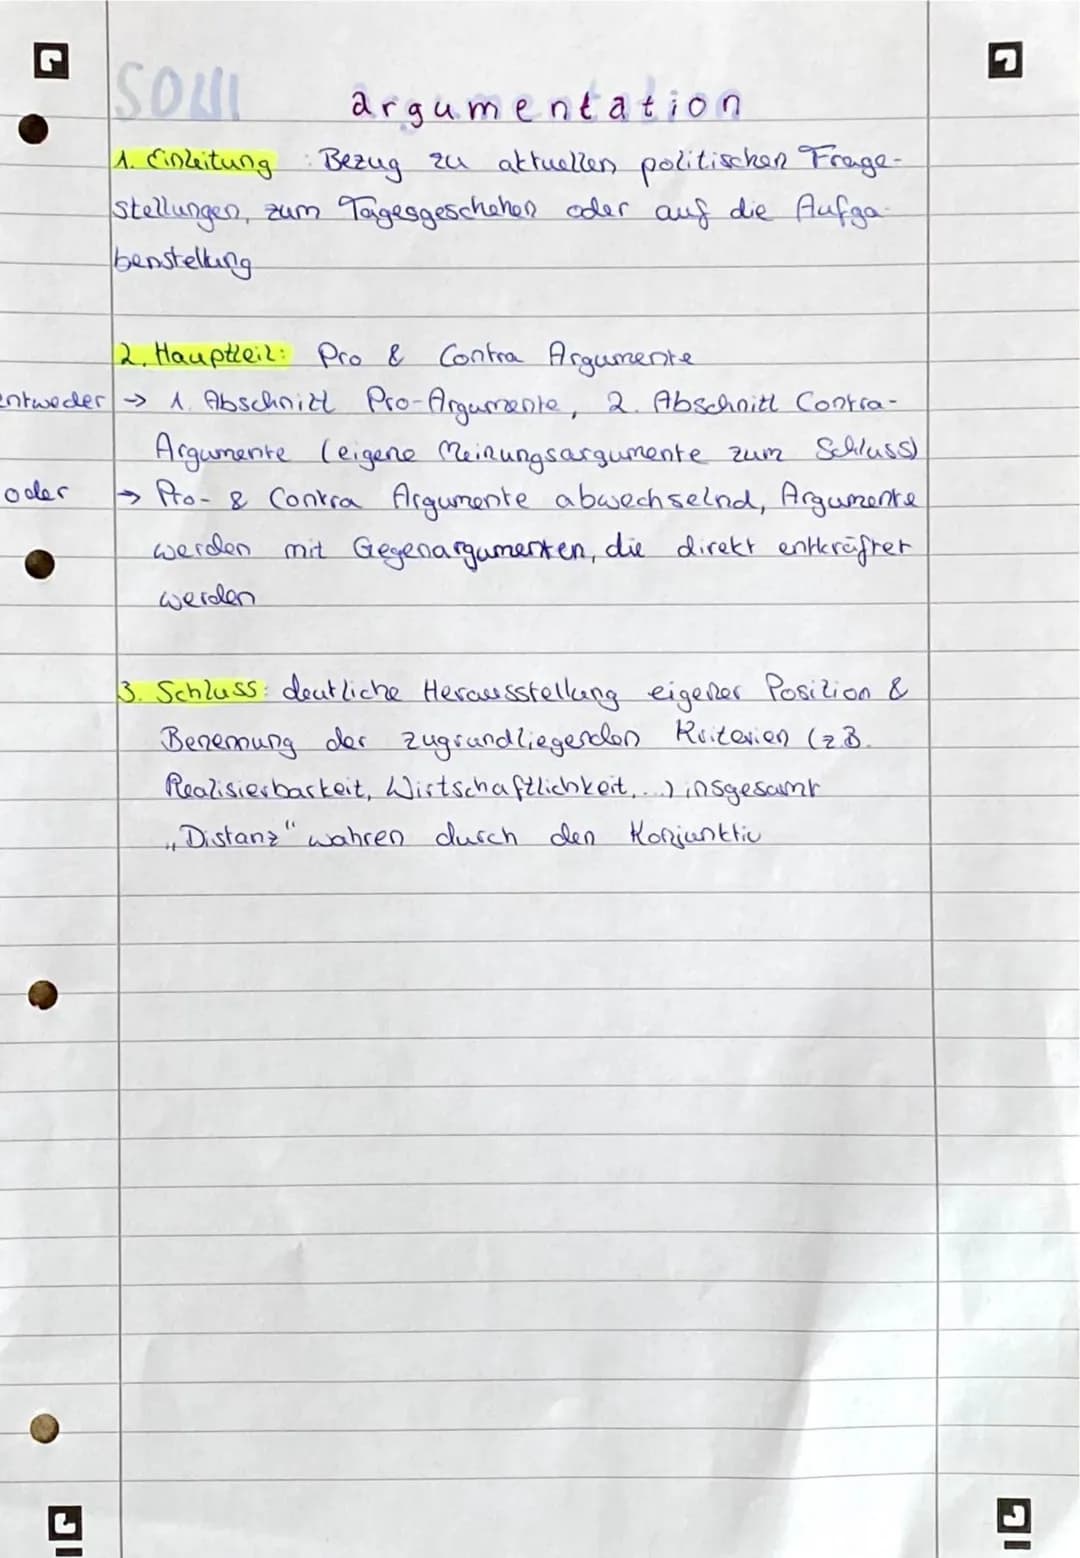 SOWI
argumentation
1. Einleitung : Bezug zu aktuellen politischen Frage-
stellungen, zum Tagesgeschehen oder auf die Aufga-
benstellung
2. Hauptteil: Pro & Contra Argumente
entweder → 1. Abschnitt Pro-Argumente, 2. Abschnitt Contra-
Argumente (eigene Meinungsargumente zum Schluss)
oder → Pro- & Contra Argumente abwechselnd, Argumente
werden mit Gegenargumenten, die direkt entkräftet
werden
3. Schluss: deutliche Herausstellung eigener Position &
Benennung der zugrundliegenden Kriterien (z.B.
Realisierbarkeit, Wirtschaftlichkeit, ...) insgesamt
„Distanz" wahren durch den Konjunktiv